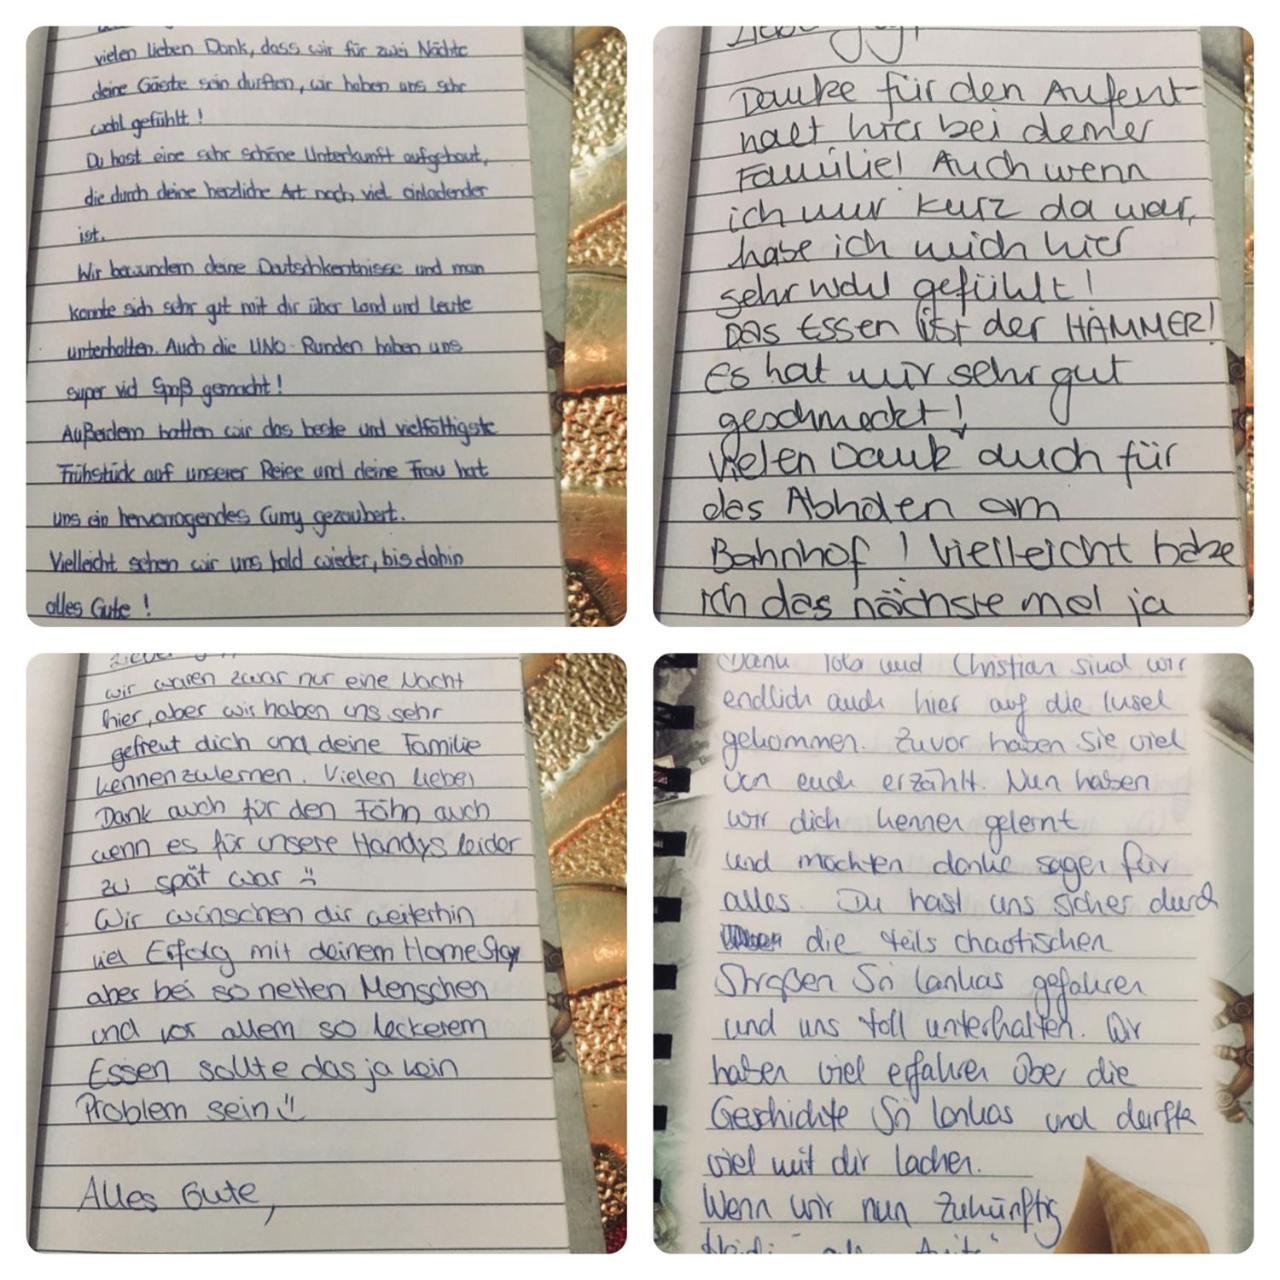 vielen lieben Dank, dass wir für zwei Nächte
deine Gäste sein durften, wir haben uns sehr
wohl gefühlt!
Du hast eine sehr schöne Unterkunft aufgebaut,
die durch deine herzliche Art noch viel einladender
ist.
Wir bewundern deine Deutschkentnisse und man
konnte sich sehr gut mit dir über Land und Leute
unterhalten. Auch die UNO-Runden haben uns
super viel Spaß gemacht!
Außerdem hatten wir das beste und vielfältigste
Frühstück auf unserer Reise und deine Frau hat
uns ein hervorragendes Curry gezaubert.
Vielleicht sehen wir uns bald wieder, bis dahin
alles Gute!
Danke für den Aufent-
halt hier bei deiner
Familie! Auch wenn
ich nur kurz da war,
habe ich mich hier
sehr wohl gefühlt!
DAS ESSEN ist der HAMMER!
Es hat mir sehr gut
geschmeckt!
Vielen Dank auch für
das Abholen am
Bahnhof! Vielleicht habe
ich das nächste mal ja
wir waren zwar nur eine Nacht
hier, aber wir haben uns sehr
gefreut dich und deine Familie
kennenzulernen. Vielen lieben
Dank auch für den Föhn auch
wenn es für unsere Handys leider
zu spät war :(
Wir wünschen dir weiterhin
viel Erfolg mit deinem HomeStay
aber bei so netten Menschen
und vor allem so leckerem
Essen sollte das ja kein
Problem sein :)
Alles Gute,
und Christian sind wir
endlich auch hier auf die Insel
gekommen. Zuvor haben Sie viel
von euch erzählt. Nun haben
wir dich kennen gelernt
und möchten danke sagen für
alles. Du hast uns sicher durch
die teils chaotischen
Straßen Sri Lankas gefahren
und uns toll unterhalten. Wir
haben viel erfahren über die
Geschichte Sri Lankas und durfte
viel mit dir lachen.
Wenn wir nun zukünftig